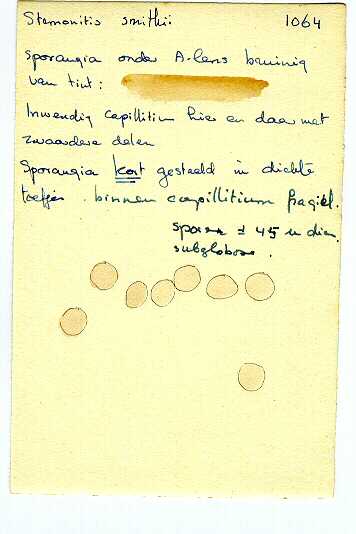 Stemonitis smithii 1064
Sporangia onder A-lens bruinig
van tint:
Inwendig capillitium hier en daar met
zwaardere delen
Sporangia kort gesteeld in dichte
toefjes. binnen capillitium fragiel.
sporen ± 45 u diam.
subgloboos.